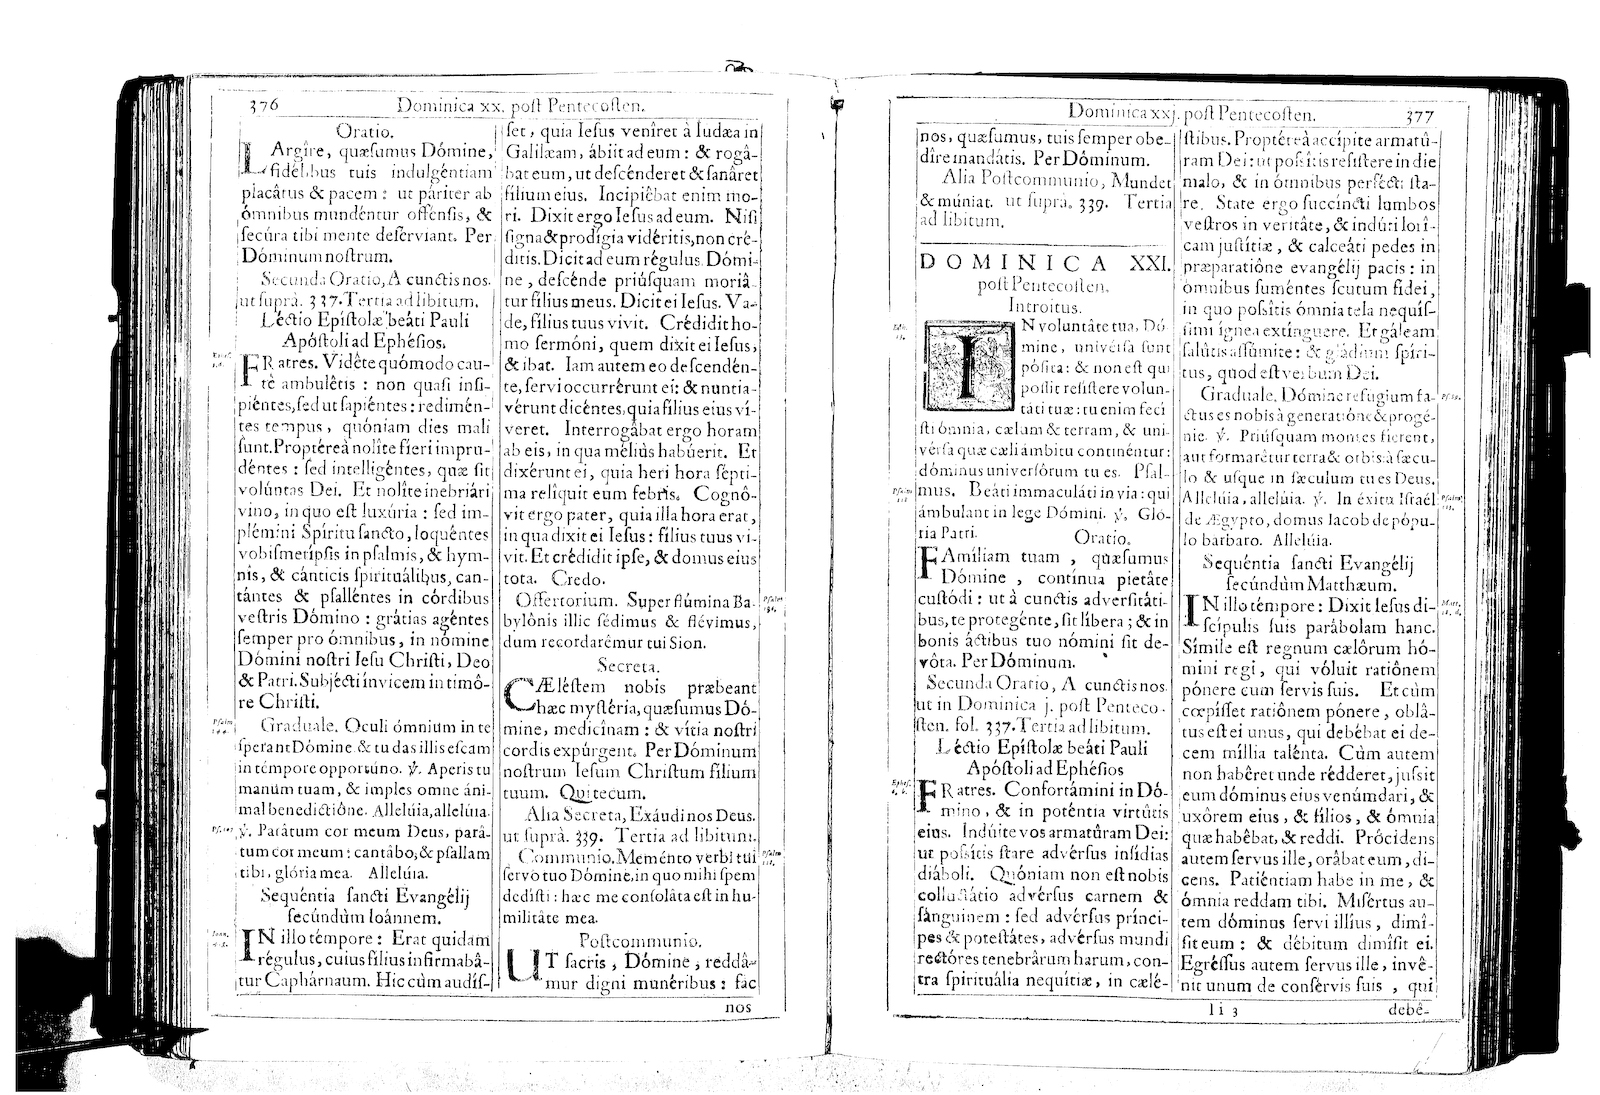 376
Dominica xx. poſt Pentecoſten.
Oratio.
LArgîre, quæſumus Dómine,
fidélibus tuis indulgéntiam
placâtus & pacem : ut páriter ab
ómnibus mundéntur offénſis, &
ſecúra tibi mente deſérviant. Per
Dóminum noſtrum.
Secunda Oratio, A cunctis nos.
ut ſuprà. 337. Tertia ad libitum.
Léctio Epíſtolæ beáti Pauli
Apóſtoli ad Ephéſios.
FRatres. Vidête quómodo cau-
tè ambulêtis : non quaſi inſi-
piéntes, ſed ut ſapiéntes : redimén-
tes tempus, quóniam dies mali
ſunt. Proptéreà nolîte fíeri impru-
déntes : ſed intelligéntes, quæ ſit
volúntas Dei. Et nolîte inebriári
vino, in quo eſt luxúria : ſed im-
plémini Spíritu ſancto, loquéntes
vobiſmetípſis in pſalmis, & hym-
nis, & cánticis ſpirituálibus, can-
tántes & pſalléntes in córdibus
veſtris Dómino : grátias agéntes
ſemper pro ómnibus, in nómine
Dómini noſtri Ieſu Chriſti, Deo
& Patri. Subjécti ínvicem in timô-
re Chriſti.
Pſalm
144.
Graduale. Oculi ómnium in te
ſperant Dómine & tu das illis eſcam
in témpore opportúno. ℣. Aperis tu
manum tuam, & imples omne áni-
mal benedictióne. Allelúia, allelúia.
℣. Parátum cor meum Deus, parâ-
tum cor meum : cantâbo, & pſallam
tibi, glória mea. Allelúia.
Sequéntia ſancti Evangélij
ſecúndùm Ioánnem.
Ioan.
IN illo témpore : Erat quidam
régulus, cuius filius infirmabâ-
tur Caphárnaum. Hic cùm audíſ-
ſet, quia Ieſus venîret à Iudæa in
Galilæam, ábiit ad eum : & rogâ-
bat eum, ut deſcénderet & ſanâret
fílium eius. Incipiêbat enim mo-
ri. Dixit ergo Ieſus ad eum. Niſi
ſigna & prodígia vidéritis, non cré-
ditis. Dicit ad eum régulus. Dómi-
ne, deſcénde priúſquam moriâ-
tur fílius meus. Dicit ei Ieſus. Va-
de, fílius tuus vivit. Crédidit ho-
mo ſermóni, quem dixit ei Ieſus,
& ibat. Iam autem eo deſcendén-
te, ſervi occurrérunt ei : & nuntia-
vérunt dicéntes, quia fílius eius ví-
veret. Interrogâbat ergo horam
ab eis, in qua méliùs habúerit. Et
dixérunt ei, quia heri hora ſépti-
ma relíquit eum febris. Cognô-
vit ergo pater, quia illa hora erat,
in qua dixit ei Ieſus : fílius tuus vi-
vit. Et crédidit ipſe, & domus eius
tota. Credo.
Pſalm
136.
Offertorium. Super flúmina Ba-
bylônis illic ſédimus & flévimus,
dum recordarémur tui Sion.
Secreta.
CÆléſtem nobis præbeant
hæc myſtéria, quæſumus Dó-
mine, medicínam : & vítia noſtri
cordis expúrgent. Per Dóminum
noſtrum Ieſum Chriſtum fílium
tuum. Qui tecum.
Alia Secreta, Exáudi nos Deus.
ut ſuprà. 339. Tertia ad libitum.
Pſalm
118.
Communio. Meménto verbi tui
ſervo tuo Dómine, in quo mihi ſpem
dediſti : hæc me conſolâta eſt in hu-
militâte mea.
Poſtcommunio.
UT ſacris, Dómine, reddâ-
mur digni munéribus : fac
nos
Dominica xxj. poſt Pentecoſten.
377
nos, quæſumus, tuis ſemper obe-
dîre mandátis. Per Dóminum.
Alia Poſtcommunio, Mundet
& múniat. ut ſuprà. 339. Tertia
ad libitum.
DOMINICA XXI.
poſt Pentecoſten.
Introitus.
IN voluntâte tua, Dó-
mine, univérſa ſunt
póſita : & non eſt qui
poſſit reſíſtere volun-
táti tuæ : tu enim feci
ſti ómnia, cælum & terram, & uni-
vérſa quæ cæli ámbitu continéntur :
dóminus univerſórum tu es. Pſal-
mus. Beáti immaculáti in via : qui
ámbulant in lege Dómini. ℣. Gló-
ria Patri.
Oratio.
FAmíliam tuam, quæſumus
Dómine, contínua pietâte
cuſtódi : ut à cunctis adverſitáti-
bus, te protegénte, ſit líbera ; & in
bonis áctibus tuo nómini ſit de-
vôta. Per Dóminum.
Secunda Oratio, A cunctis nos.
ut in Dominica j. poſt Penteco-
ſten. fol. 337. Tertia ad libitum.
Léctio Epíſtolæ beáti Pauli
Apóſtoli ad Ephéſios
FRatres. Confortámini in Dó-
mino, & in poténtia virtûtis
eius. Indúite vos armatûram Dei :
ut poſſítis ſtare advérſus inſídias
diáboli. Quóniam non eſt nobis
colluctátio advérſus carnem &
ſánguinem : ſed advérſus prínci-
pes & poteſtâtes, advérſus mundi
rectóres tenebrârum harum, con-
tra ſpirituália nequítiæ, in cælé-
ſtibus. Proptéreà accípite armatû-
ram Dei : ut poſſítis reſíſtere in die
malo, & in ómnibus perfécti ſta-
re. State ergo ſuccíncti lumbos
veſtros in veritâte, & indúti lorî-
cam juſtítiæ, & calceáti pedes in
præparatióne evangélij pacis : in
ómnibus ſuméntes ſcutum fídei,
in quo poſſítis ómnia tela nequíſ-
ſimi ígnea extínguere. Et gáleam
ſalûtis aſſúmite : & gládium ſpíri-
tus, quod eſt verbum Dei.
Graduale. Dómine refúgium fa-
ctus es nobis à generatióne & progé-
nie. ℣. Priúſquam montes fíerent,
aut formarétur terra & orbis : à ſæcu-
lo & uſque in ſæculum tu es Deus.
Allelúia, allelúia. ℣. In éxitu Iſraél
de Ægypto, domus Iacob de pópu-
lo bárbaro. Allelúia.
Sequéntia ſancti Evangélij
ſecúndùm Matthæum.
IN illo témpore : Dixit Ieſus di-
ſcípulis ſuis parábolam hanc.
Símile eſt regnum cælôrum hó-
mini regi, qui vóluit ratiônem
pónere cum ſervis ſuis. Et cùm
cœpíſſet ratiônem pónere, oblâ-
tus eſt ei unus, qui debêbat ei de-
cem míllia talénta. Cùm autem
non habêret unde rédderet, juſſit
eum dóminus eius venúmdari, &
uxórem eius, & fílios, & ómnia
quæ habêbat, & reddi. Prócidens
autem ſervus ille, orâbat eum, di-
cens. Patiéntiam habe in me, &
ómnia reddam tibi. Miſértus au-
tem dóminus ſervi illíus, dimí-
ſit eum : & débitum dimíſit ei.
Egréſſus autem ſervus ille, invê-
nit unum de conſérvis ſuis, qui
Ii 3
debê-